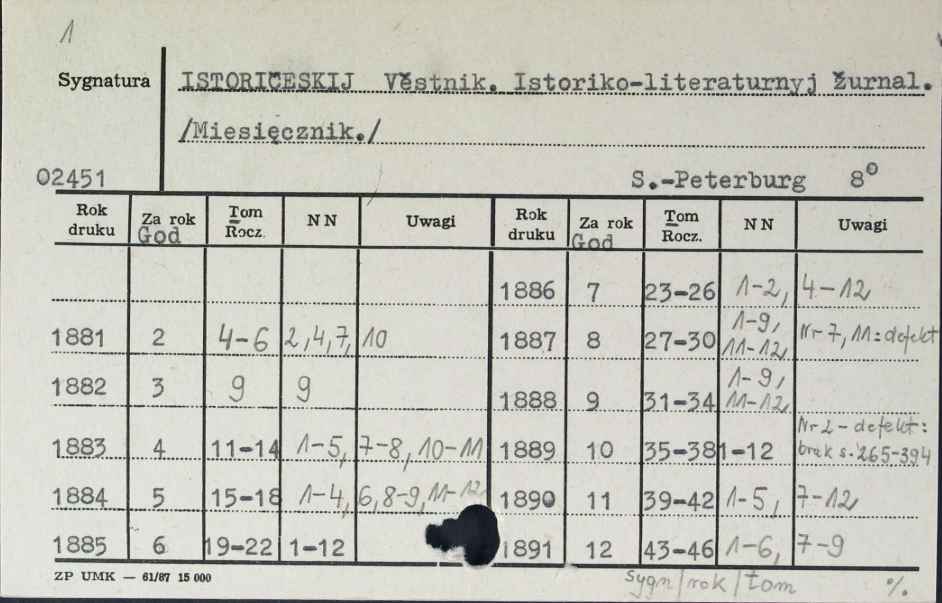 1
Sygnatura ISTORIČESKIJ Věstnik. Istoriko-literaturnyj žurnal.
/Miesięcznik./
02451 S.-Peterburg 8°
Rok druku Za rok God Tom Rocz. NN Uwagi Rok druku Za rok God Tom Rocz. NN Uwagi
1886 7 23-26 1-2, 4-12
1881 2 4-6 2,4,7, 10 1887 8 27-30 1-9, 11-12, Nr 7, 11: defekt
1882 3 9 9 1888 9 31-34 1-9, 11-12,
1883 4 11-14 1-5, 7-8, 10-11 1889 10 35-38 1-12 Nr 2 - defekt: brak s. 265-394
1884 5 15-18 1-4, 6, 8-9, 11-12 1890 11 39-42 1-5, 7-12
1885 6 19-22 1-12 1891 12 43-46 1-6, 7-9
ZP UMK — 61/67 15 000 sygn/rok/tom %.